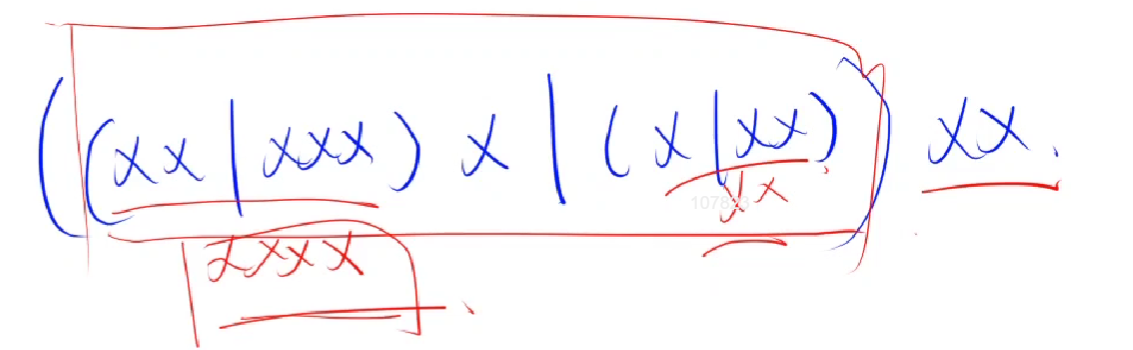 ((xx|xxx)x|(x|xx))xx.
xx
xxxx